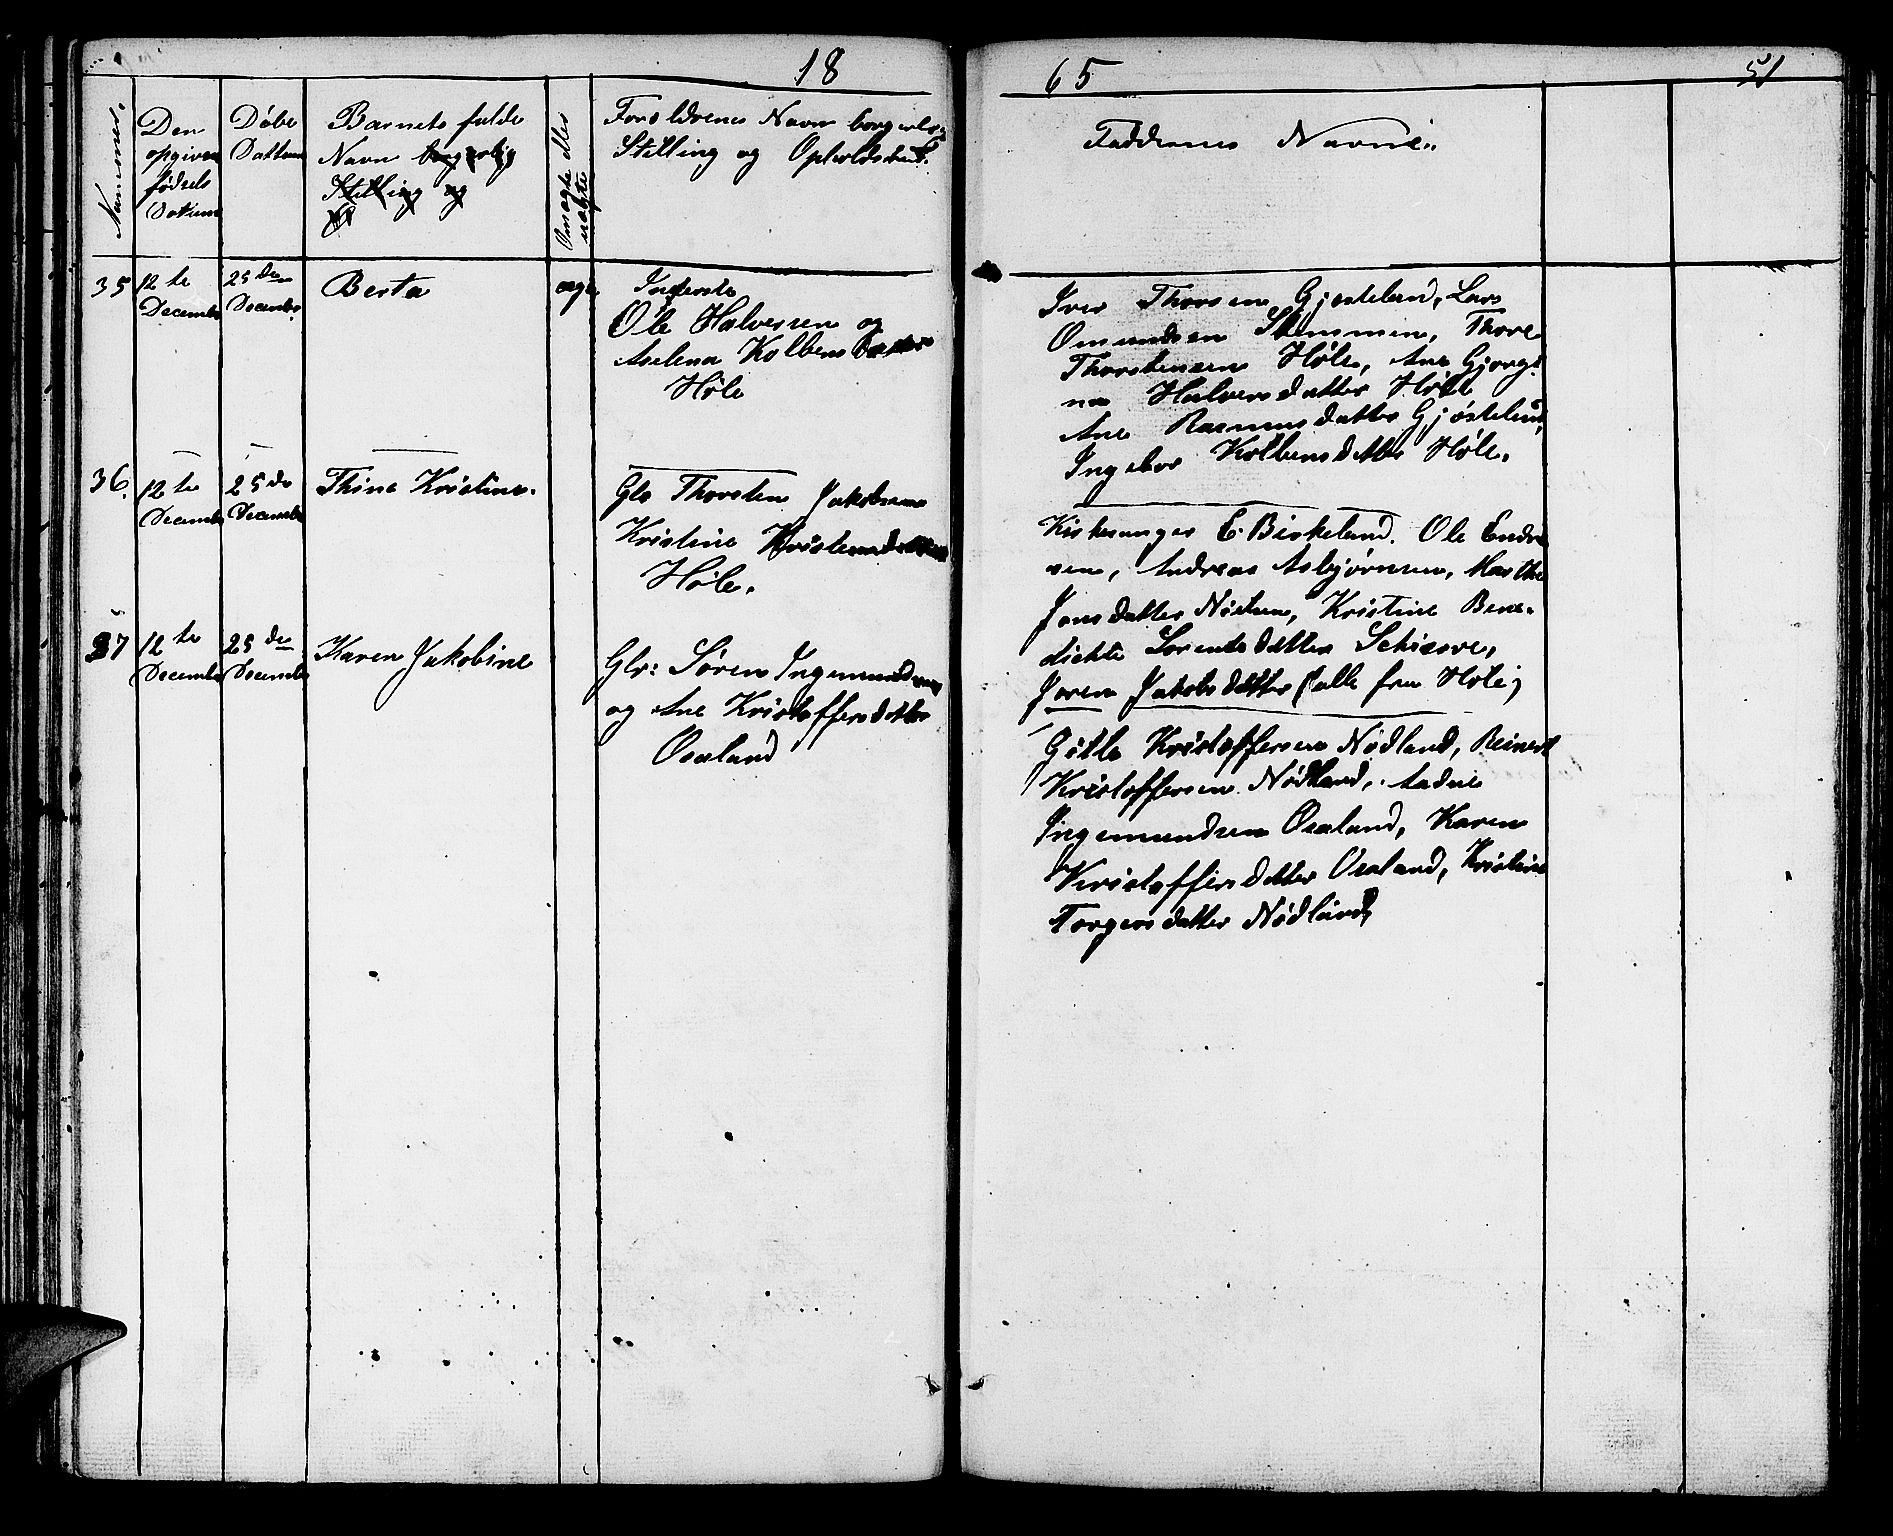 18
65
51
Numer.
Den
opgivne
fødsels
Datum
Døbe
Dattum
Barnets fulde
Navn borgerlig
Stilling og
uægte
Foreldrenes Navn borgerlig
Stilling og Opholdsted.
Faddernes Navne.
35
12 te
December
25 de
December
Berta
ægte
Inderste
Ole Halversen og
Aselena Kolbensdatter
Høle
Iver Thorsen Gjøsteland, Lars
Omundsen Stemmen, Thore
Thorstensen Høle, Ane Gjorgi
na Halversdatter Høle
Ane Rasmusdatter Gjøsteland,
Ingebor Kolbensdatter Høle.
36.
12 te
December
25 de
December
Thine Kristine.
Gbr Thorsten Jakobsen
Kristine Kristensdatter
Høle.
Kirkesanger E. Birkeland. Ole Endre
sen, Andreas Asbjørnsen, Marthe
Jonsdatter Nøstun, Kristine Bene-
dichte Lorentsdatter Schiøve,
Joren Jakobsdatter (alle fra Høle)
37
12 te
December
25 de
December
Karen Jakobine
Gbr: Søren Ingemundsen
og Ane Kristoffersdatter
Osaland
Gitle Kristoffersen Nødland, Reinert
Kristoffersen Nødland, Aadne
Ingemundsen Osaland, Karen
Kristoffersdatter Osaland, Kristine
Torgersdatter Nødland,